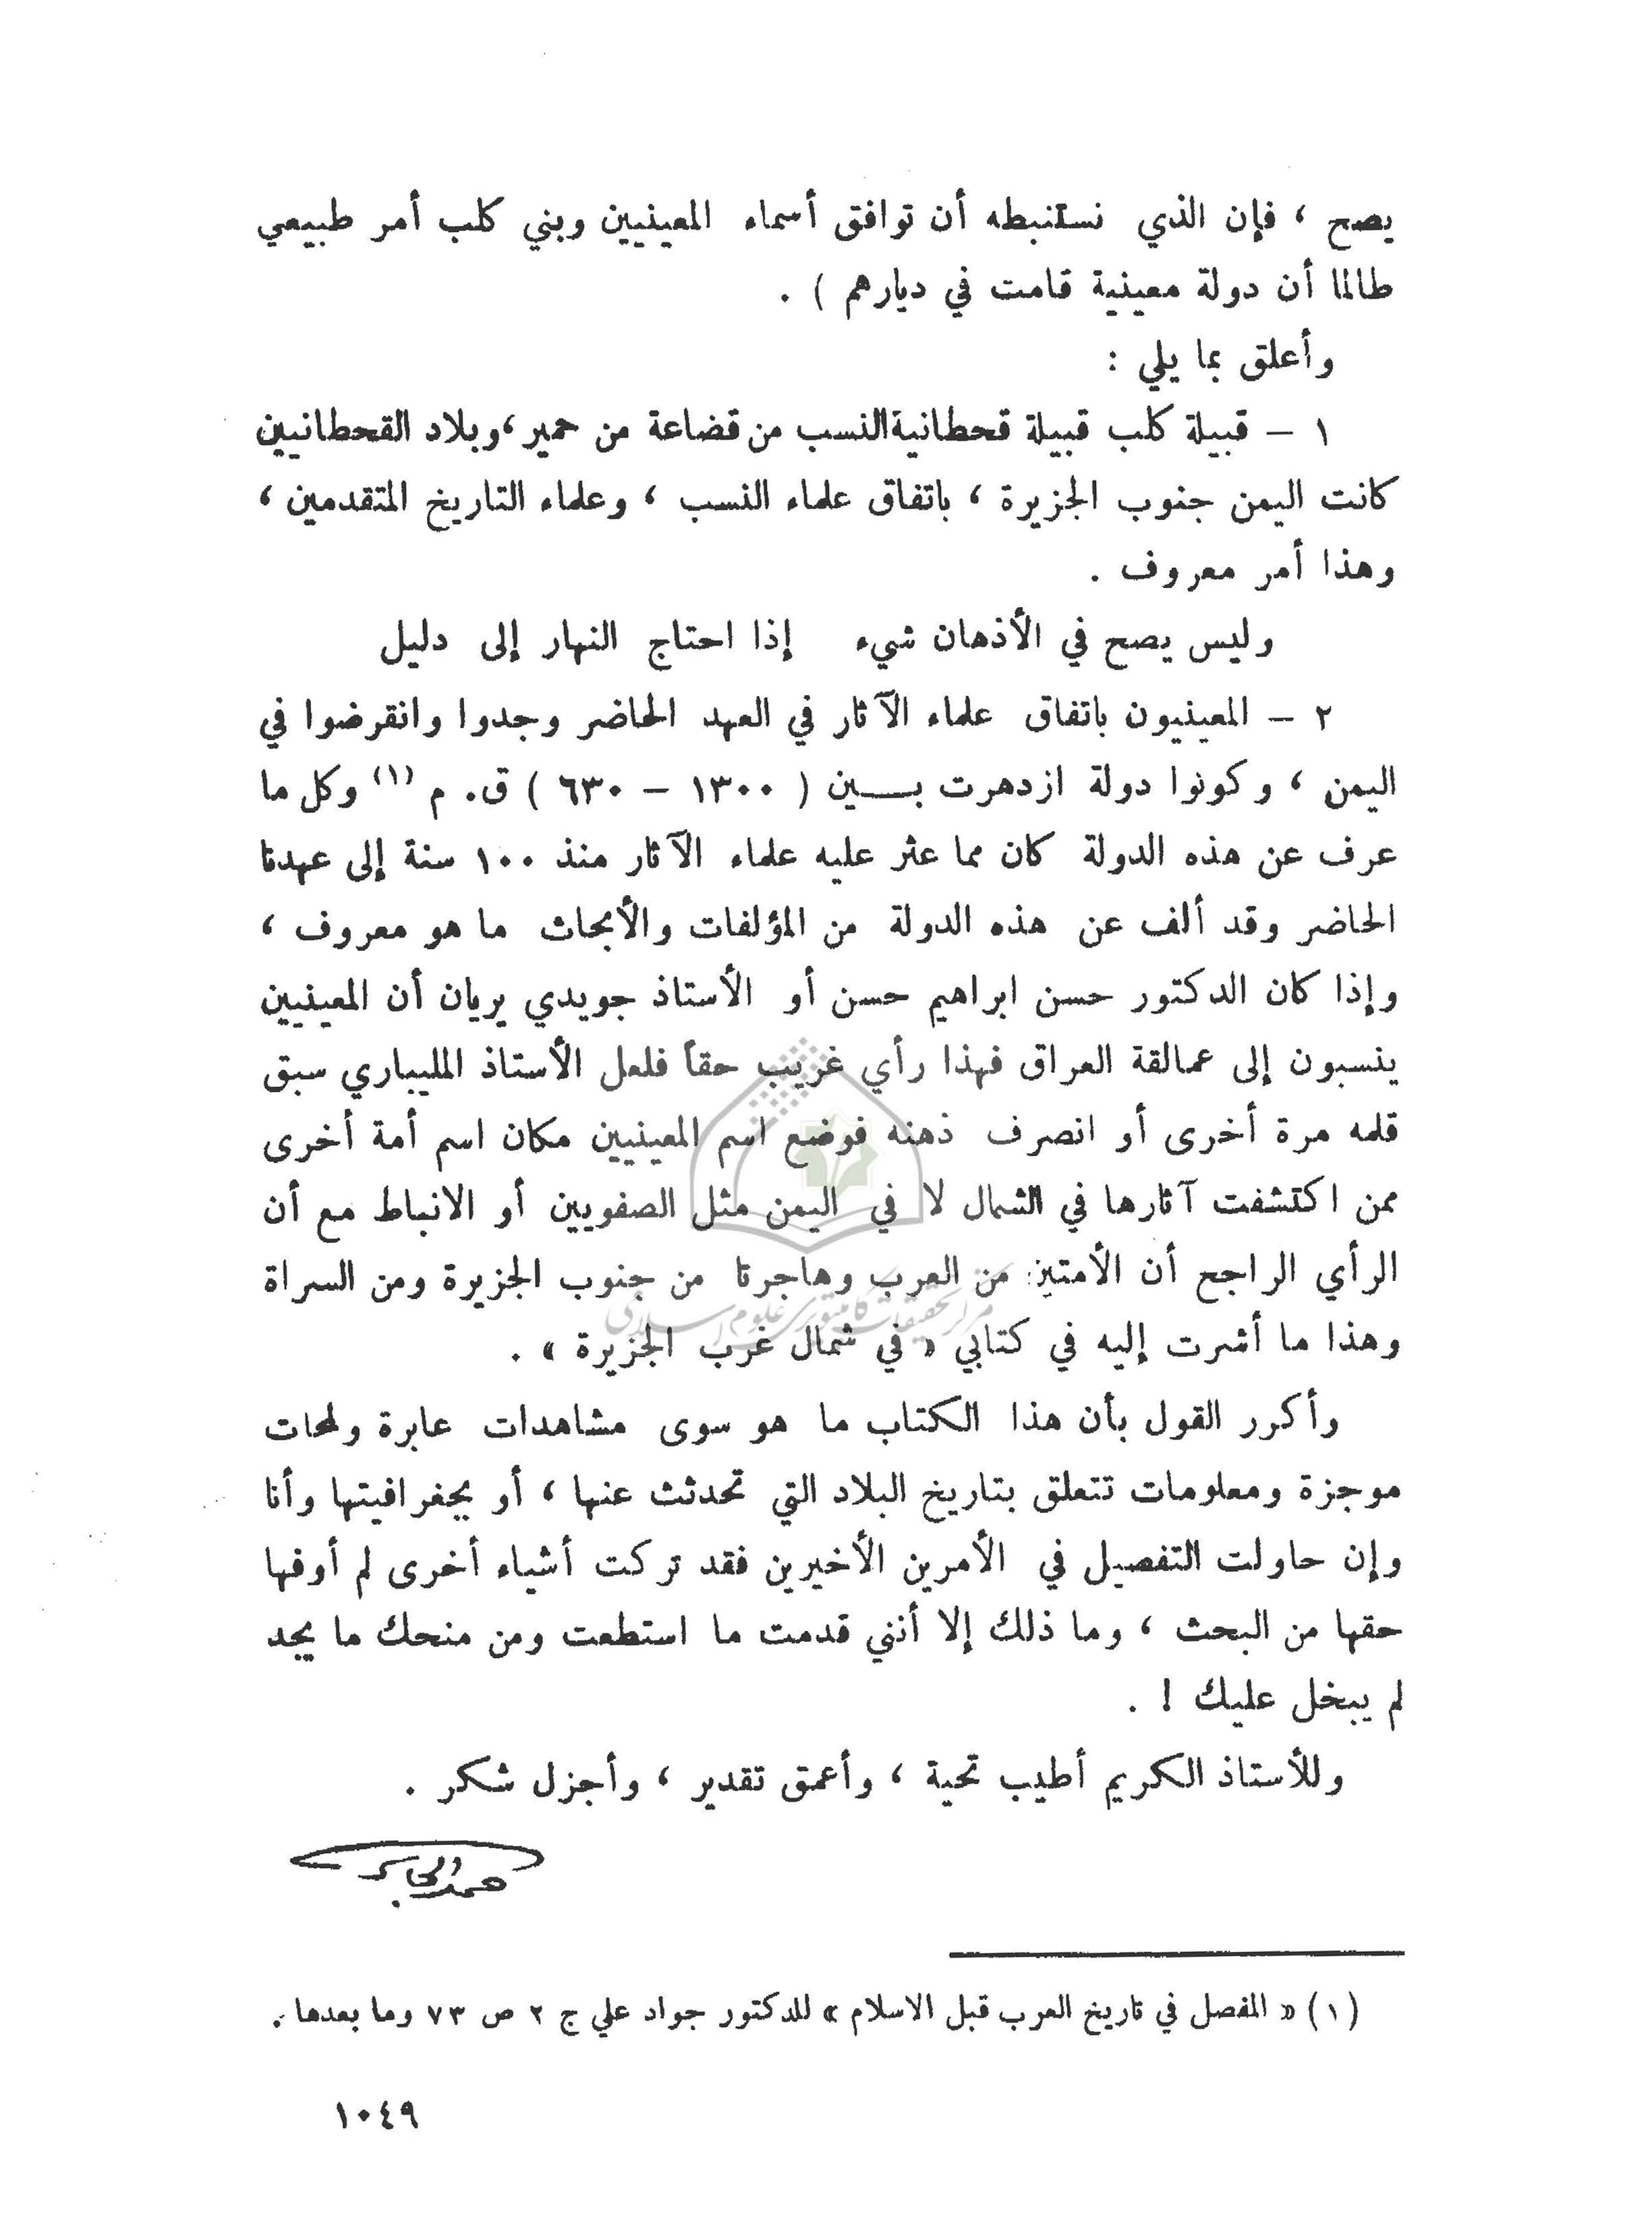 يصح ، فإن الذي نستنبطه أن توافق أسماء المعينيين وبني كلب أمر طبيعي
طالما أن دولة معينية قامت في ديارهم ) .
وأعلق بما يلي :
١ – قبيلة كلب قبيلة قحطانية النسب من قضاعة من حمير ، وبلاد القحطانيين
كانت اليمن جنوب الجزيرة ، باتفاق علماء النسب ، وعلماء التاريخ المتقدمين ،
وهذا أمر معروف .
وليس يصح في الأذهان شيء إذا احتاج النهار إلى دليل
٢ – المعينيون باتفاق علماء الآثار في العهد الحاضر وجدوا وانقرضوا في
اليمن ، وكونوا دولة ازدهرت بـــين ( ١٣٠٠ – ٦٣٠ ) ق. م (١) وكل ما
عرف عن هذه الدولة كان مما عثر عليه علماء الآثار منذ ١٠٠ سنة إلى عهدنا
الحاضر وقد ألف عن هذه الدولة من المؤلفات والأبحاث ما هو معروف ،
وإذا كان الدكتور حسن ابراهيم حسن أو الأستاذ جويدي يريان أن المعينيين
ينسبون إلى عمالقة العراق فهذا رأي غريب حقاً فلعل الأستاذ المليباري سبق
قلمه مرة أخرى أو انصرف ذهنه فوضع اسم المعينيين مكان اسم أمة أخرى
ممن اكتشفت آثارها في الشمال لا في اليمن مثل الصفويين أو الانباط مع أن
الرأي الراجح أن الأمتين من العرب وهاجرتا من جنوب الجزيرة ومن السراة
مركز تحقيقات كامپيوتري علوم اسلامي
وهذا ما أشرت إليه في كتابي « في شمال غرب الجزيرة » .
وأكرر القول بأن هذا الكتاب ما هو سوى مشاهدات عابرة ولمحات
موجزة ومعلومات تتعلق بتاريخ البلاد التي تحدثت عنها ، أو بجغرافيتها وأنا
وإن حاولت التفصيل في الأمرين الأخيرين فقد تركت أشياء أخرى لم أوفها
حقها من البحث ، وما ذلك إلا أنني قدمت ما استطعت ومن منحك ما يجد
لم يبخل عليك ! .
وللأستاذ الكريم أطيب تحية ، وأعمق تقدير ، وأجزل شكر .
حمد الجاسر
(١) « المفصل في تاريخ العرب قبل الاسلام » للدكتور جواد علي ج ٢ ص ٧٣ وما بعدها .
١٠٤٩